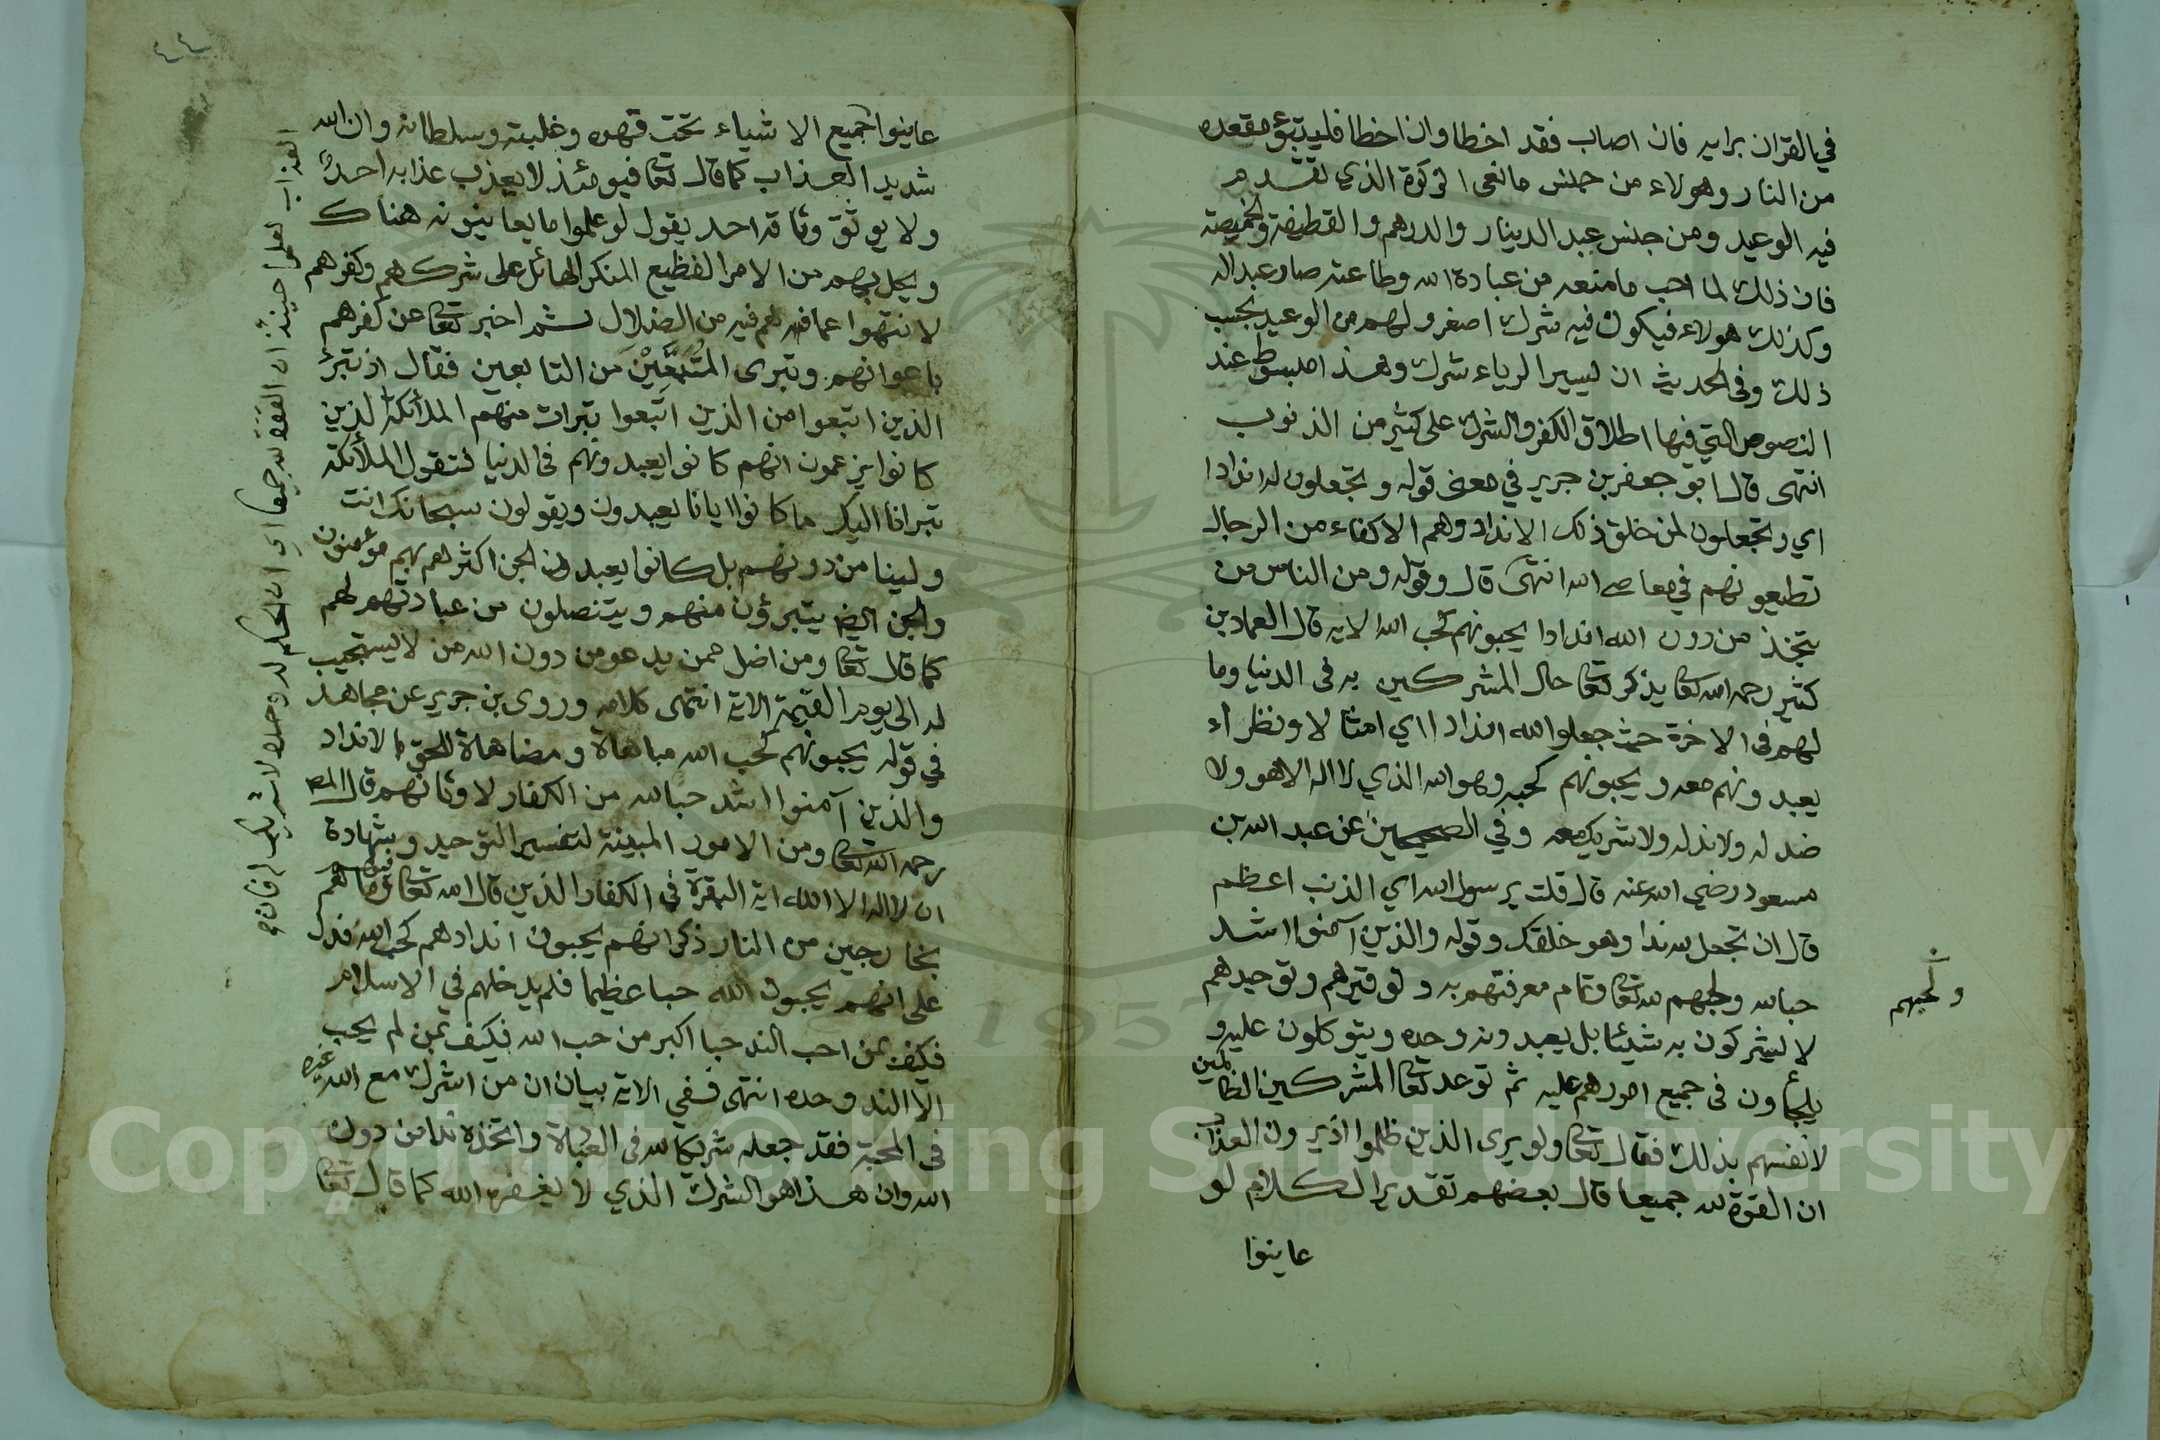 في القران برايه فان اصاب فقد اخطا وان اخطا فليتبؤ مقعده
من النار وهولاء من جنس مانعي الزكوة الذي تقدم
فيه الوعيد ومن جنس عبد الدينار والدرهم والقطيفة والخميصة
فان ذلك لما احب ما منعه من عبادة الله وطاعته صار عبدا له
وكذلك هولاء فيكون فيه شرك اصغر ولهم من الوعيد بحسب
ذلك وفي الحديث ان يسير الرياء شرك وهذا مبسوط عند
النصوص التي فيها اطلاق الكفر والشرك على كثير من الذنوب
انتهى قال ابو جعفر بن جرير في معنى قوله وتجعلون له اندادا
اي وتجعلون لمن خلق ذلك الانداد وهم الاكفاء من الرجال
تطيعونهم في معاصي الله انتهى قال وقوله ومن الناس من
يتخذ من دون الله اندادا يحبونهم كحب الله الاية قال العماد بن
كثير رحمه الله تعا يذكر تعا حال المشركين به في الدنيا وما
لهم في الاخرة حيث جعلوا لله اندادا اي امثالا ونظراء
يعبدونهم معه ويحبونهم كحبه وهو الله الذي لا اله الا هو ولا
ضد له ولا ند له ولا شريك معه وفي الصحيحين عن عبد الله بن
مسعود رضي الله عنه قال قلت يرسول الله اي الذنب اعظم
قال ان تجعل لله ندا وهو خلقك وقوله والذين آمنوا اشد
حبا لله ولحبهم لله تعا وتمام معرفتهم به وتوقيرهم وتوحيدهم
لا يشركون به شيئا بل يعبدونه وحده ويتوكلون عليه و
يلجأون في جميع امورهم عليه ثم توعد تعا المشركين الظالمين
لانفسهم بذلك فقال تعا ولو يرى الذين ظلموا اذ يرون العذاب
ان القوة لله جميعا قال بعضهم تقدير الكلام لو
عاينوا
ولحبهم
عاينوا جميع الاشياء تحت قهره وغلبته وسلطانه وان الله
شديد العذاب كما قال تعا فيومئذ لا يعذب عذابه احد
ولا يوثق وثاقه احد يقول لو علموا ما يعاينونه هناك
ويحل بهم من الامر الفظيع المنكر الهائل على شركهم وكفرهم
لانتهوا عما هم فيه من الضلال ثم اخبر تعا عن كفرهم
باعوانهم وتبرى المتبعين من التابعين فقال اذ تبرأ
الذين اتبعوا من الذين اتبعوا تبرات منهم الملائكة الذين
كانوا يزعمون انهم كانوا يعبدونهم في الدنيا فتقول الملائكة
تبرانا اليك ما كانوا ايانا يعبدون ويقولون سبحانك انت
ولينا من دونهم بل كانوا يعبدون الجن اكثرهم بهم مؤمنون
والجن ايضا يتبرؤن منهم ويتنصلون من عبادتهم لهم
كما قال تعا ومن اضل ممن يدعو من دون الله من لا يستجيب
له الى يوم القيمة الاية انتهى كلامه وروى بن جرير عن مجاهد
في قوله يحبونهم كحب الله مباهاة ومضاهاة للحق بالانداد
والذين آمنوا اشد حبا لله من الكفار لاوثانهم قال المص
رحمه الله تعا ومن الامور المبينة لتفسير التوحيد وشهادة
ان لا اله الا الله اية البقرة في الكفار الذين قال الله تعا فيهم وما هم
بخارجين من النار ذكر انهم يحبون اندادهم كحب الله فدل
على انهم يحبون الله حبا عظيما فلم يدخلهم في الاسلام
فكيف بمن احب الند حبا اكبر من حب الله فكيف بمن لم يحب
الا الند وحده انتهى ففي الاية بيان ان من اشرك مع الله غيره
في المحبة فقد جعله شريكا لله في العبادة واتخذه ندا من دون
الله وان هذا هو الشرك الذي لا يغفره الله كما قال تعا
العذاب لعلموا حينئذ ان القوة لله جميعا اي ان الحكم له وحده لا شريك له فان